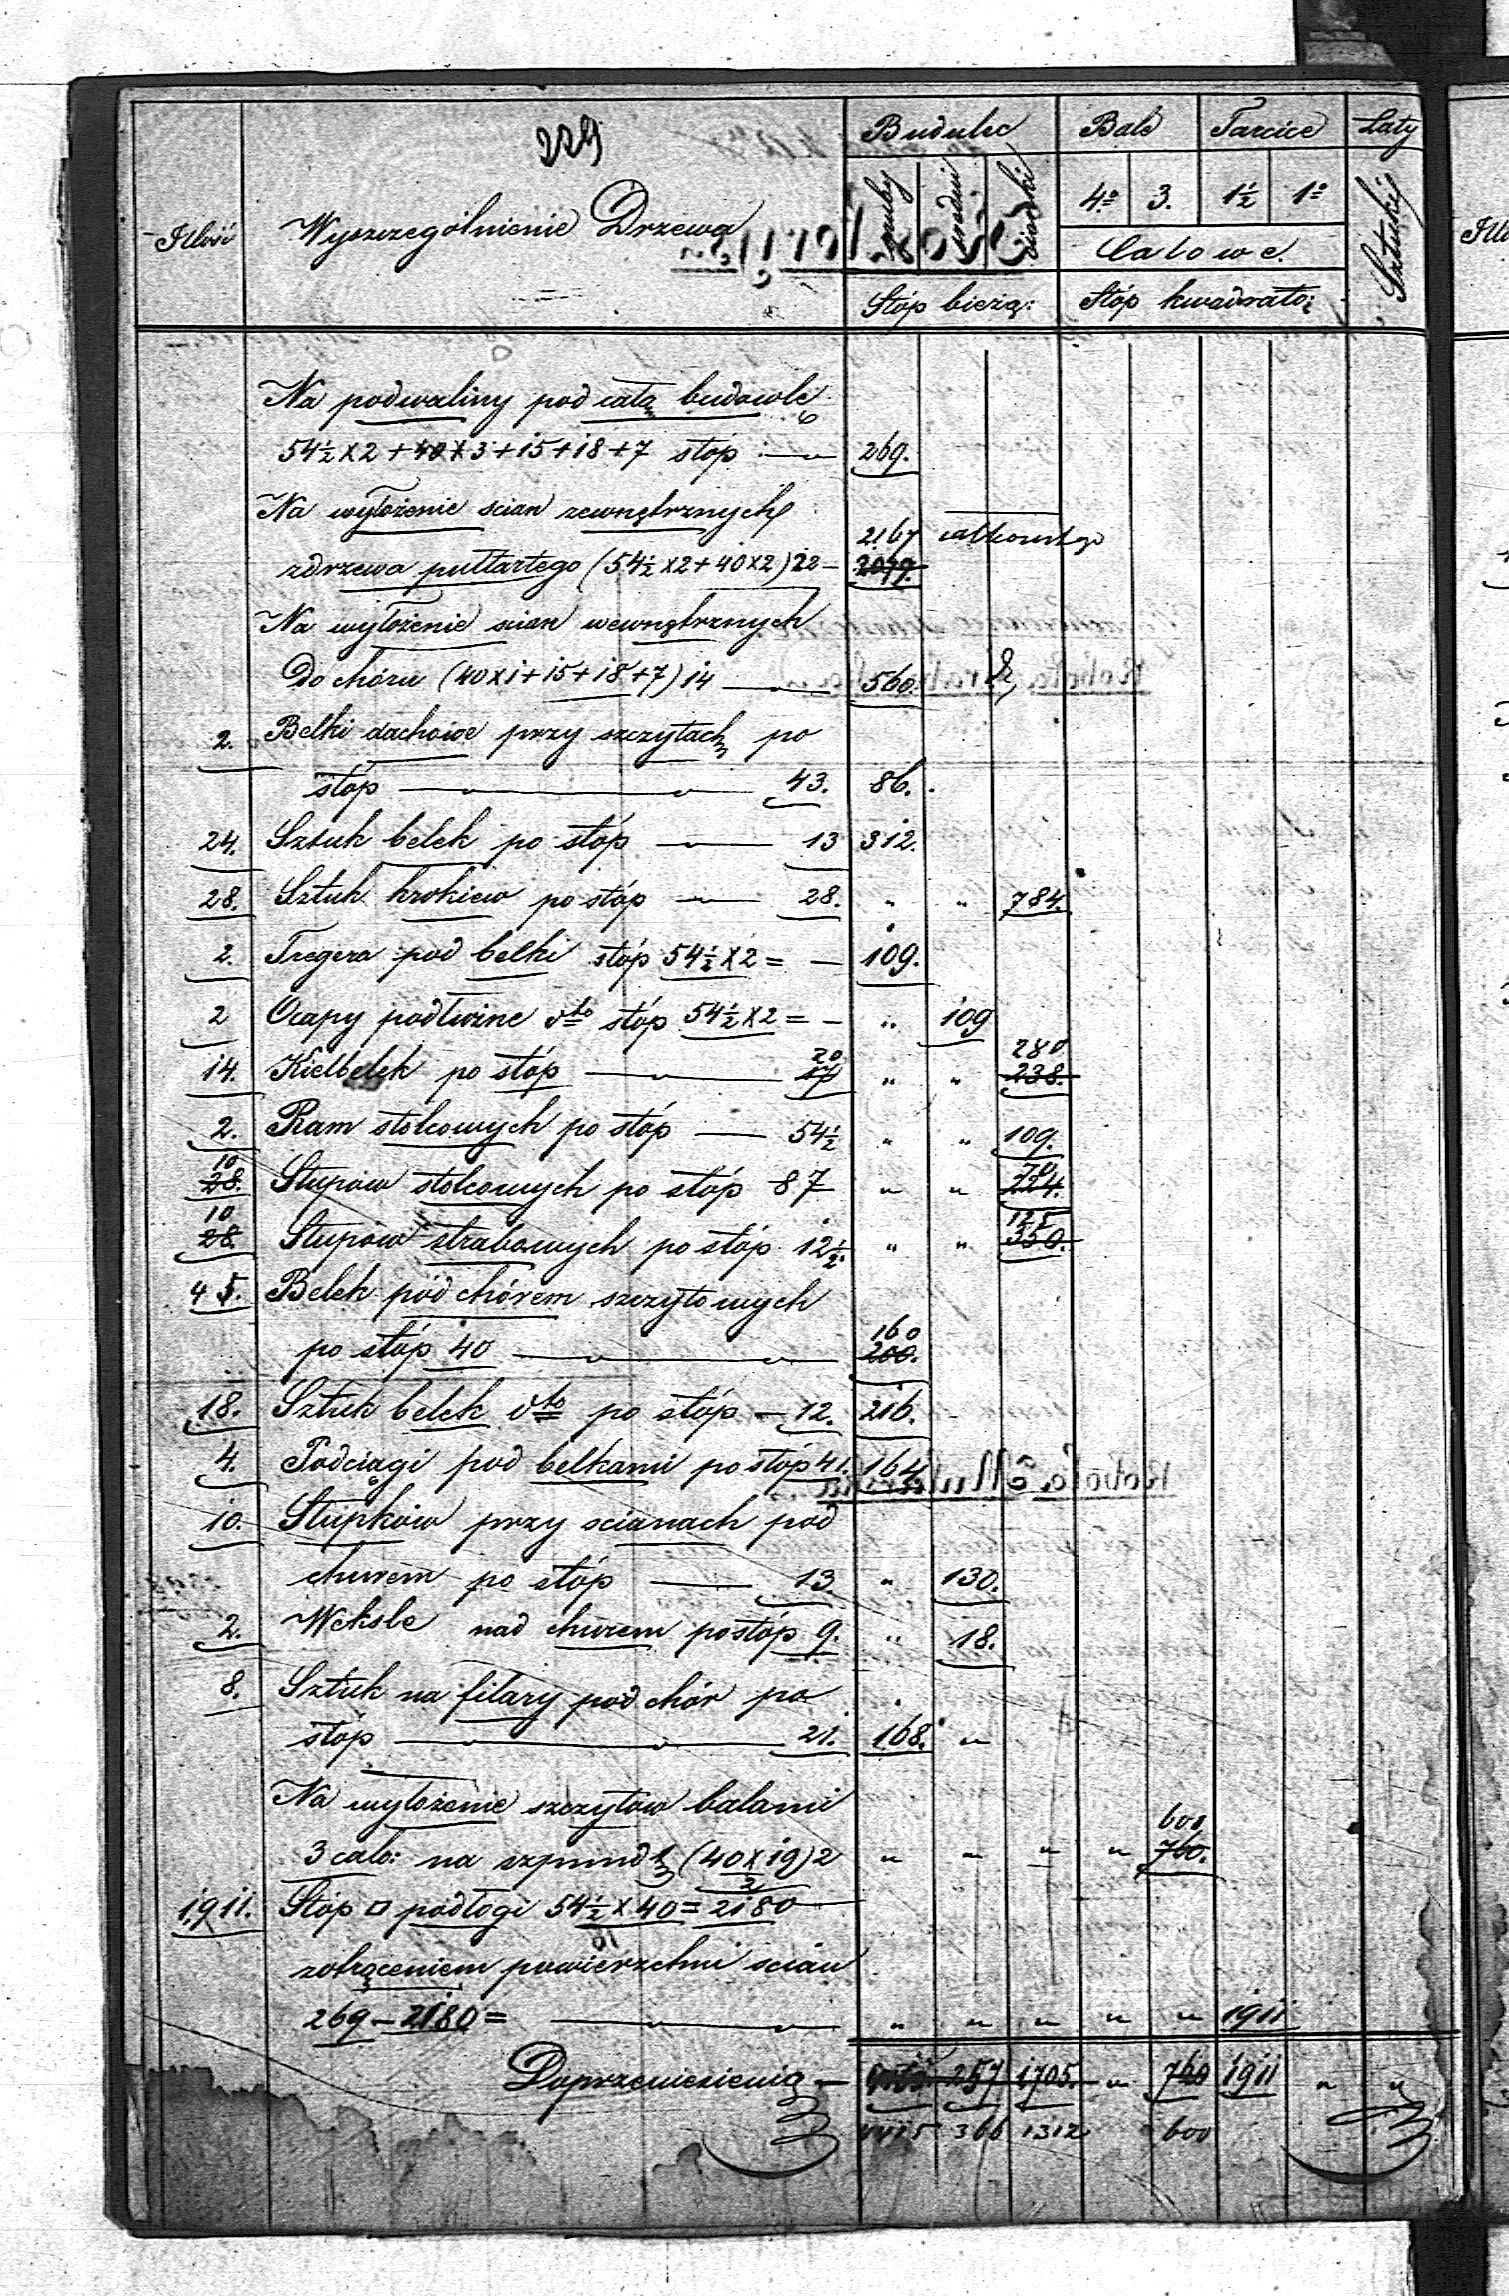 229
Ilość Wyszczególnienie Drzewa Budulec Bale Tarcice Łaty
gruby średni cieńki 4.° 3. 1½ 1° Sztuki
Calowe.
Stóp bieżą: Stóp kwadrato:
Na podwaliny pod całą budowlę
54½ x 2 + 40 x 3 + 15 + 18 + 7 stóp 269.
Na wyłożenie scian zewnętrznych
zdrzewa pułtartego (54½ x 2 + 40 x 2) 22 — 2167 2079.
Na wyłożenie scian wewnętrznych
Do chóru (40 x 1 + 15 + 18 + 7) 14 — 560.
2. Belki dachowe przy szczytach po
stóp — 43. 86.
24. Sztuk belek po stóp — 13 312.
28. Sztuk krokiew po stóp — 28. " " 784.
2. Tregera pod belki stóp 54½ x 2 = — 109.
2 Ocapy podłużne dto stóp 54½ x 2 = — " 109
14. Kielbelek po stóp — 20 17 " " 280 238.
2. Ram stolcowych po stóp — 54½ " " 109.
10 28. Słupów stolcowych po stóp 8 7 " " 70 224.
10 28. Słupów strabowych po stóp 12½. " " 125 350.
4 5. Belek pod chórem szczytowych
po stóp 40 — 160 200.
18. Sztuk belek dto po stóp — 12. 216.
4. Podciągi pod belkami po stóp 41. 164
10. Słupków przy scianach pod
churem po stóp — 13. " 130.
2. Weksle nad churem po stóp 9. " 18.
8. Sztuk na filary pod chór po
stóp — 21. 168. "
Na wyłożenie szczytów balami
3 calo: na szpund (40 x 19) 2 " " " " 600 760.
2
1911. Stóp □ podłogi 54½ x 40 = 2180
zotrąceniem powierzchni scian
269 – 2180 = — " " " " " 1911
Doprzeniesienia — 257 1705. " 760 1911 " "
4415 366 1312 600